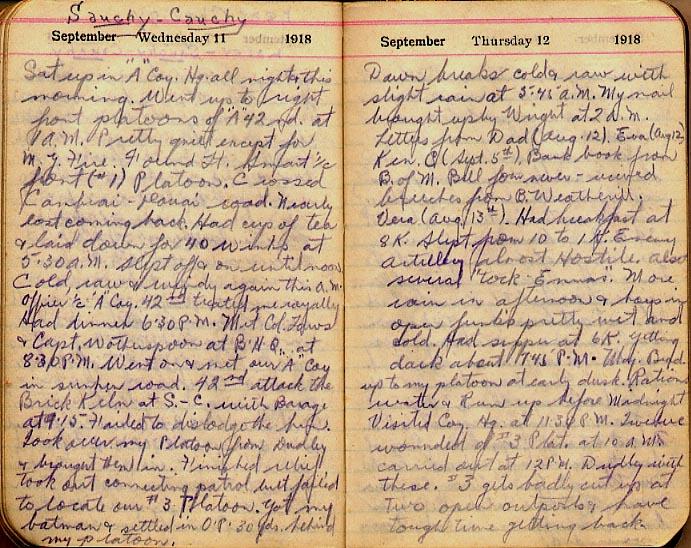 Sauchy-Cauchy
September Wednesday 11 1918
Sat up in "A" Coy. Hq. all night & this
morning. Went up to right
front platoons of "A" 42nd. at
1 A.M. Pretty quiet except for
M. G. Fire. Found Lt. i/c
front (#1) Platoon. Crossed
Cambrai - road. Nearly
lost coming back. Had cup of tea
& laid down for 40 winks at
5:30 a.m. Slept off & on until noon
Cold, raw & windy again this A.M.
Officer i/c "A" Coy. 42nd treated me royally
Had dinner 6:30 P.M. Met Col.
& Capt. Wotherspoon at B.H.Q. at
8:30 P.M. Went on & met our "A" Coy
in sunken road. 42nd attack the
Brick Kiln at S.-C. with Barage
at 9:15. Failed to dislodge the
Took over my Platoon from Dudley
& brought them in. Finished relief
took out connecting patrol but failed
to locate our #3 Platoon. Got my
batman & settled in O.P. 30 yds. behind
my platoon.
September Thursday 12 1918
Dawn breaks cold & raw with
slight rain at 5:45 A.M. My mail
brought up by Wright at 2 A.M.
Letters from Dad (Aug. 12). Eva (Aug 12)
Ken. C (Sept. 5th), Bank book from
B. of M. Bill for never-received
breeches from B. Weatherill.
Vera (Aug 13th). Had breakfast at
8K. Slept from 10 to 1K. Enemy
artillery almost Hostile. also
several "Tock-Emmas". More
rain in afternoon & boys in
open funks pretty wet and
cold. Had supper at 6K. Getting
dark about 7:45 P.M.
up to my platoon at early dusk. Rations
water & Rum up before Midnight
Visited Coy. Hq. at 11:30 P.M.
wounded of #3 Plat. at 10 A.M.
carried out at 12 P.M. Dudley with
these. #3 gets badly cut up at
two open outposts & have
tough time getting back.